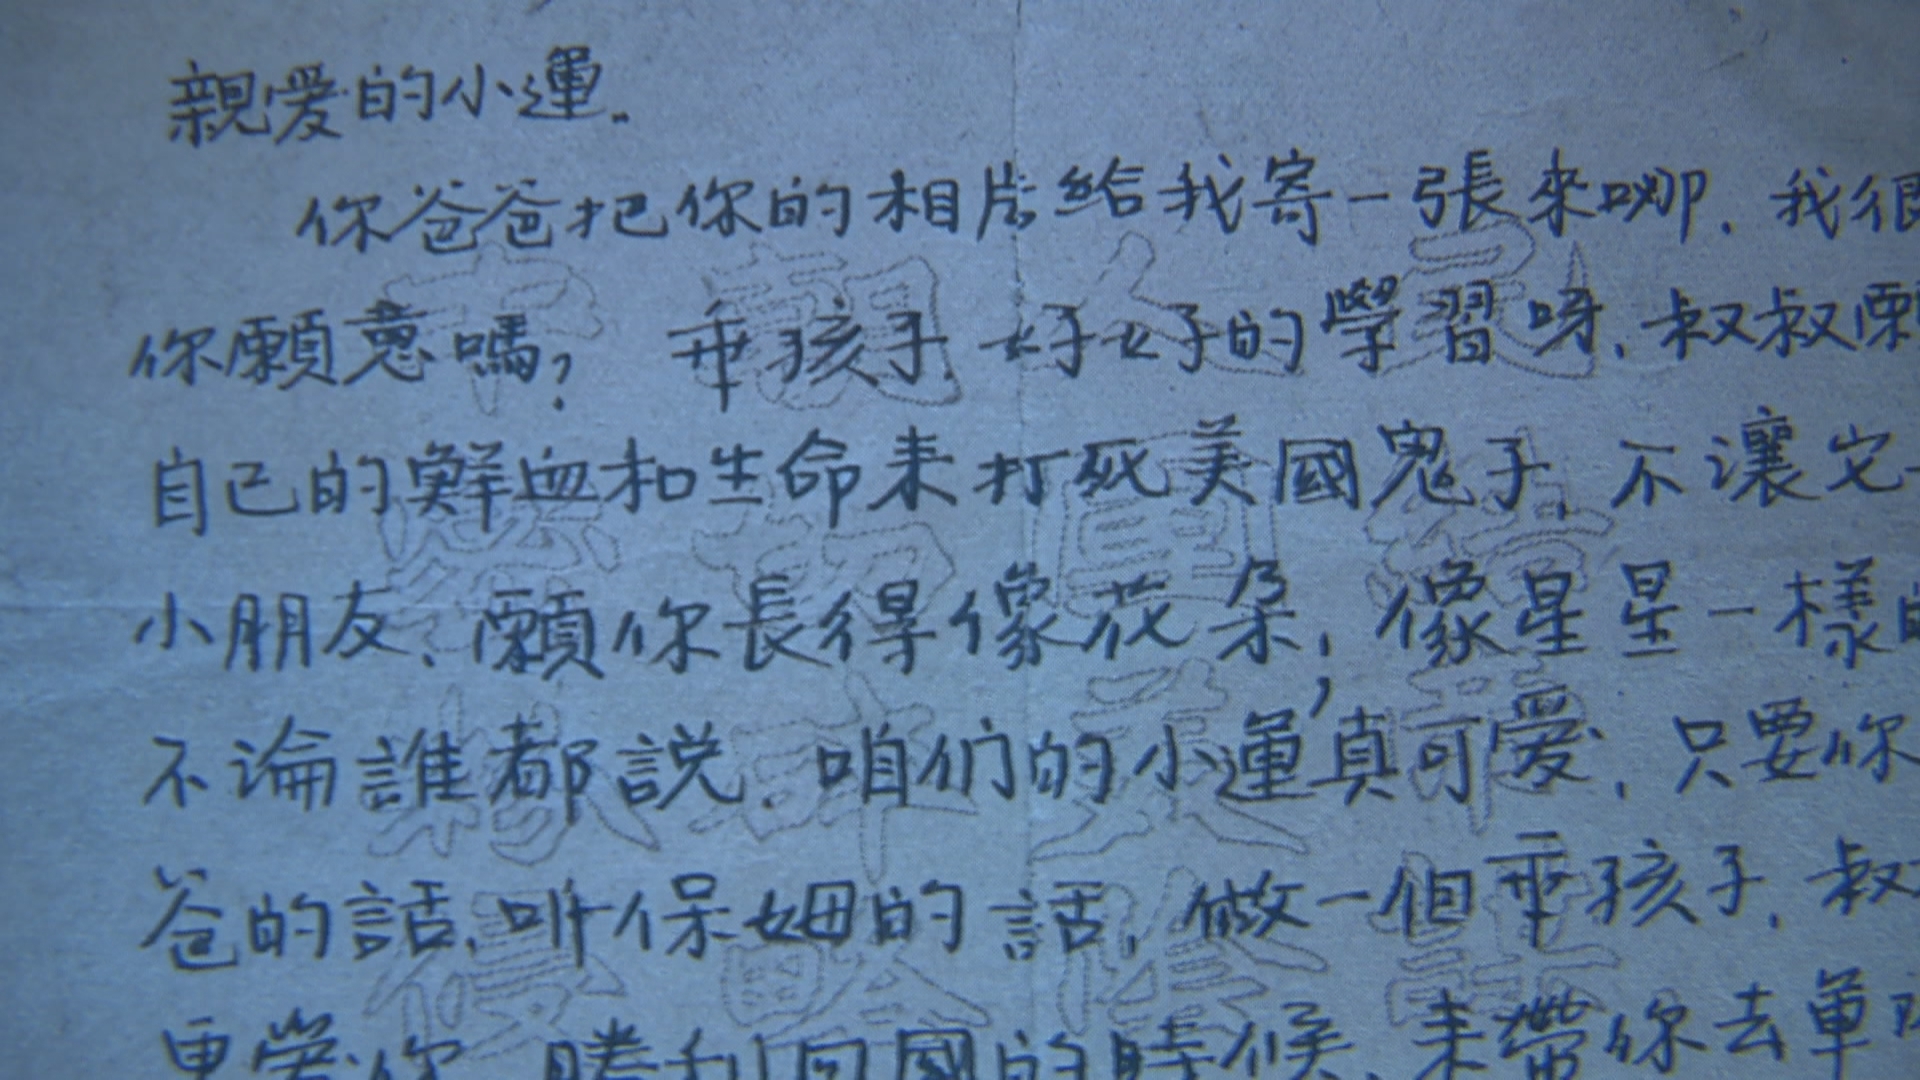 親爱的小運.
你爸爸把你的相片給我寄一張來哪.我很
你願意嗎?乖孩子好好的學習呀.叔叔願
自己的鮮血和生命来打死美國鬼子,不讓它
小朋友、願你長得像花朵,像星星一樣的
不論誰都説.咱们的小運真可爱.只要你
爸的話,听保姆的話,做一個乖孩子.叔
更愛你 勝利回國的時候,来帶你去單